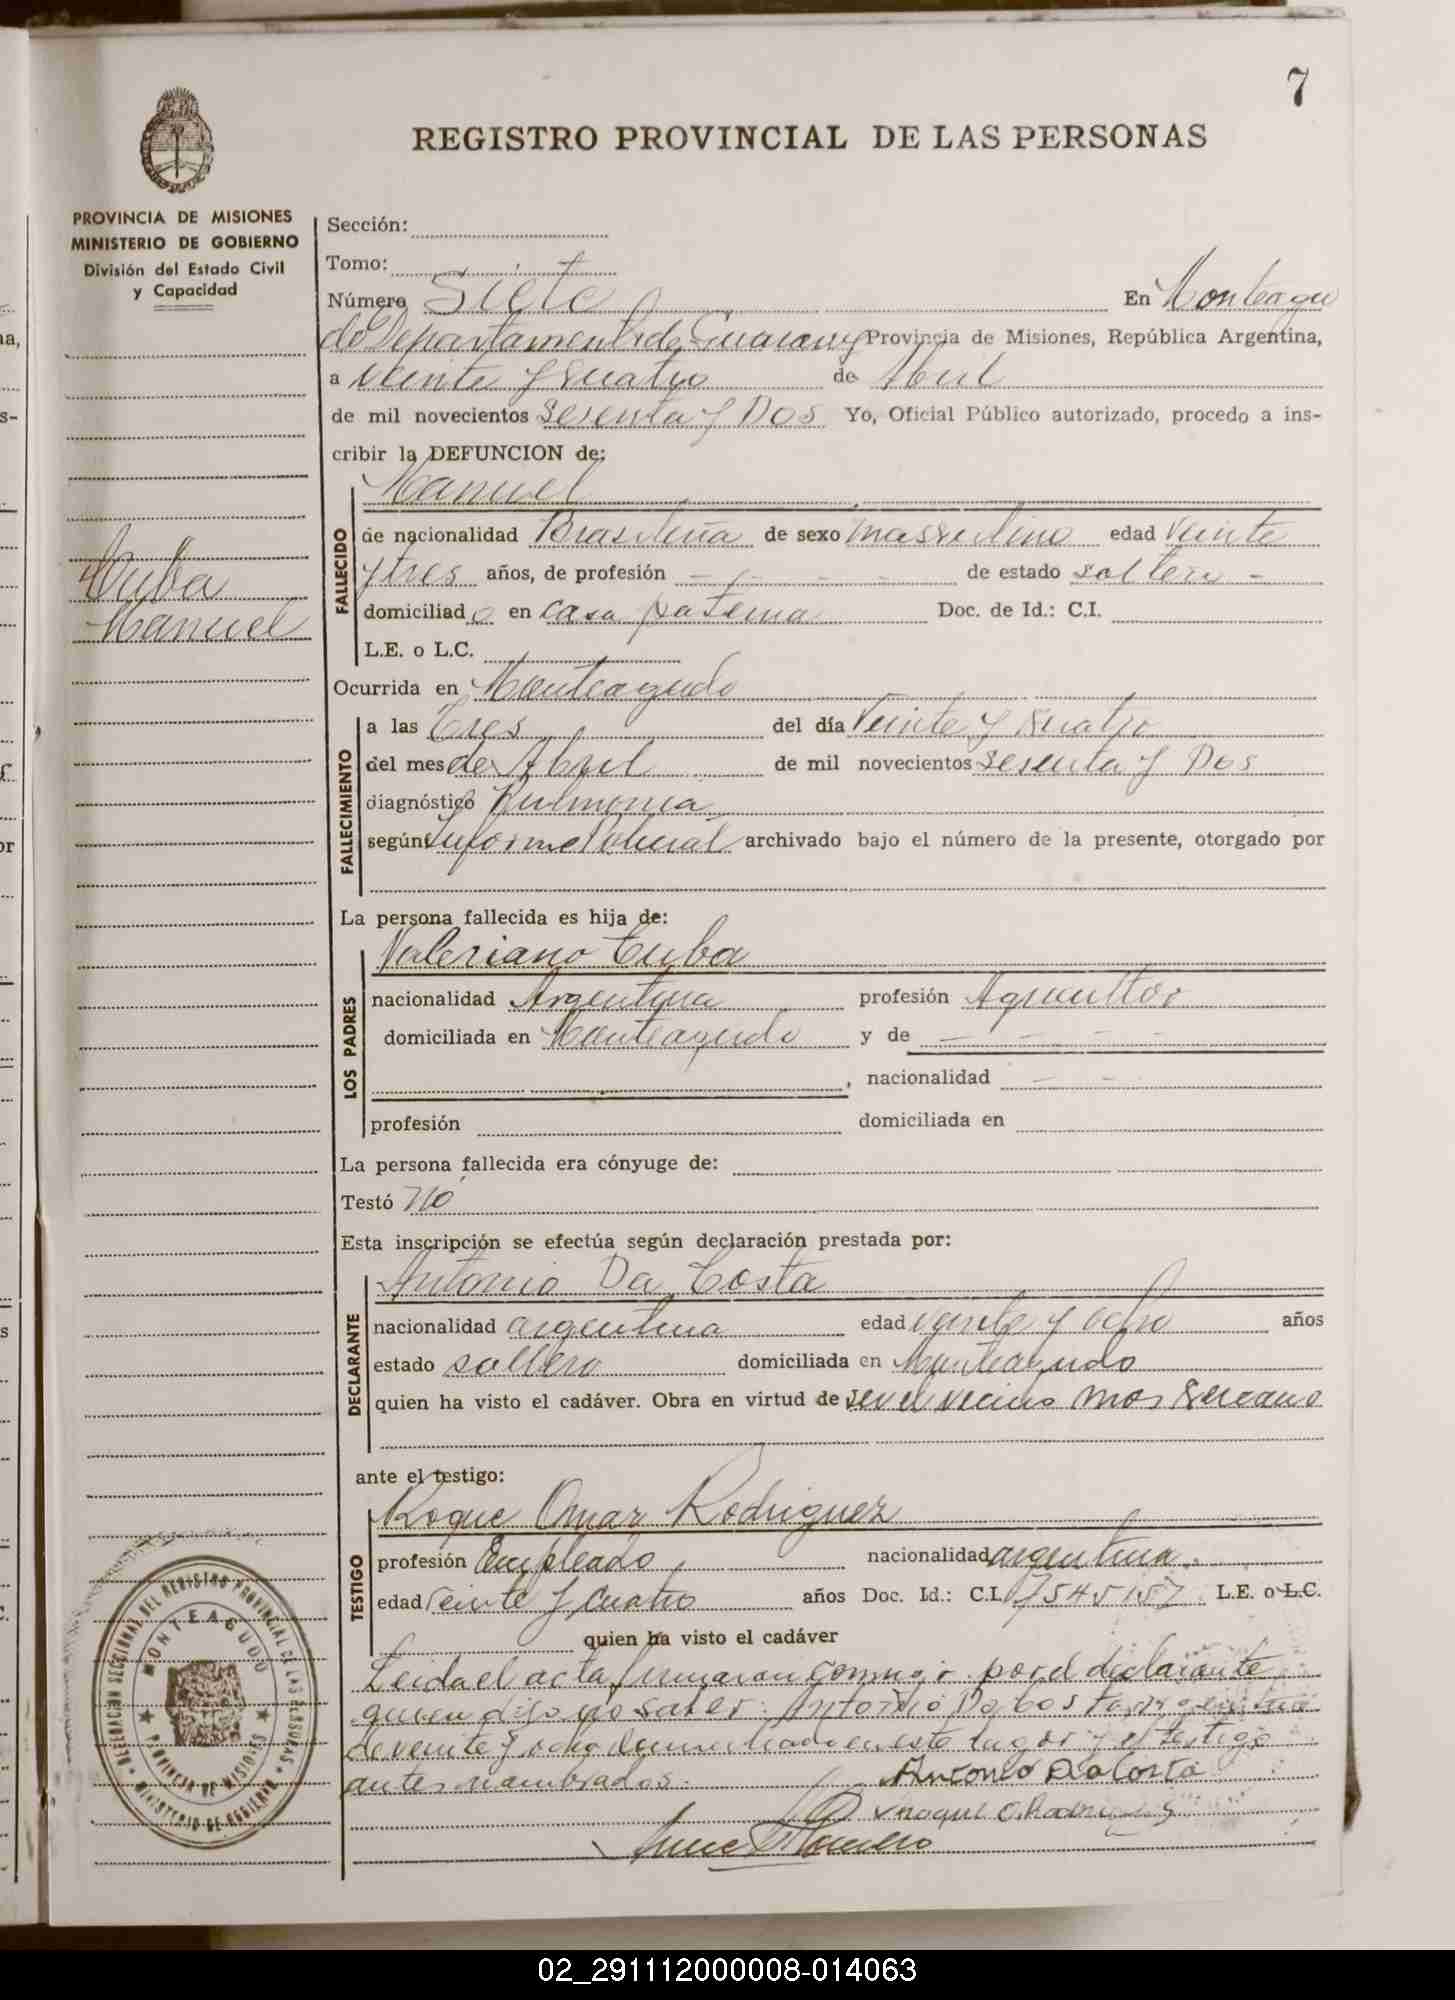 7
REGISTRO PROVINCIAL DE LAS PERSONAS
PROVINCIA DE MISIONES
MINISTERIO DE GOBIERNO
División del Estado Civil
y Capacidad
Cuba
Manuel
Sección:
Tomo:
Número Siete En Monteagu
do Departamento de Guarany Provincia de Misiones, República Argentina,
a Veinte y cuatro de Abril
de mil novecientos Sesenta y Dos Yo, Oficial Público autorizado, procedo a ins-
cribir la DEFUNCION de:
FALLECIDO
Manuel
de nacionalidad Brasileña de sexo masculino edad Veinte
y tres años, de profesión - - - - de estado soltero -
domiciliado en casa paterna Doc. de Id.: C.I.
L.E. o L.C.
Ocurrida en Monteagudo
FALLECIMIENTO
a las Tres del día Veinte y cuatro
del mes de Abril de mil novecientos Sesenta y Dos
diagnóstico Pulmonia
según Informe Policial archivado bajo el número de la presente, otorgado por
La persona fallecida es hija de:
LOS PADRES
Valeriano Cuba
nacionalidad Argentina profesión Agricultor
domiciliada en Monteagudo y de - - - -
, nacionalidad - -
profesión domiciliada en
La persona fallecida era cónyuge de:
Testó no
Esta inscripción se efectúa según declaración prestada por:
DECLARANTE
Antonio Da Costa
nacionalidad argentina edad veinte y ocho años
estado soltero domiciliada en Monteagudo
quien ha visto el cadáver. Obra en virtud de ser el vecino mas sercano
ante el testigo:
TESTIGO
Roque Omar Rodriguez
profesión Empleado nacionalidad argentina.
edad Veinte y cuatro años Doc. Id.: C.I. 7545157 L.E. o L.C.
quien ha visto el cadáver
Leida el acta firmaron conmigo por el declarante
quien dijo no saber: Antonio Da Costa argentino
de veinte y ocho domiciliado en este lugar y el testigo
antes nombrados.
Antonio Da Costa
Roque O. Rodriguez
DELEGACION SECCIONAL DEL REGISTRO PROVINCIAL DE LAS PERSONAS
MONTEAGUDO
PROVINCIA DE MISIONES
MINISTERIO DE GOBIERNO
02_291112000008-014063